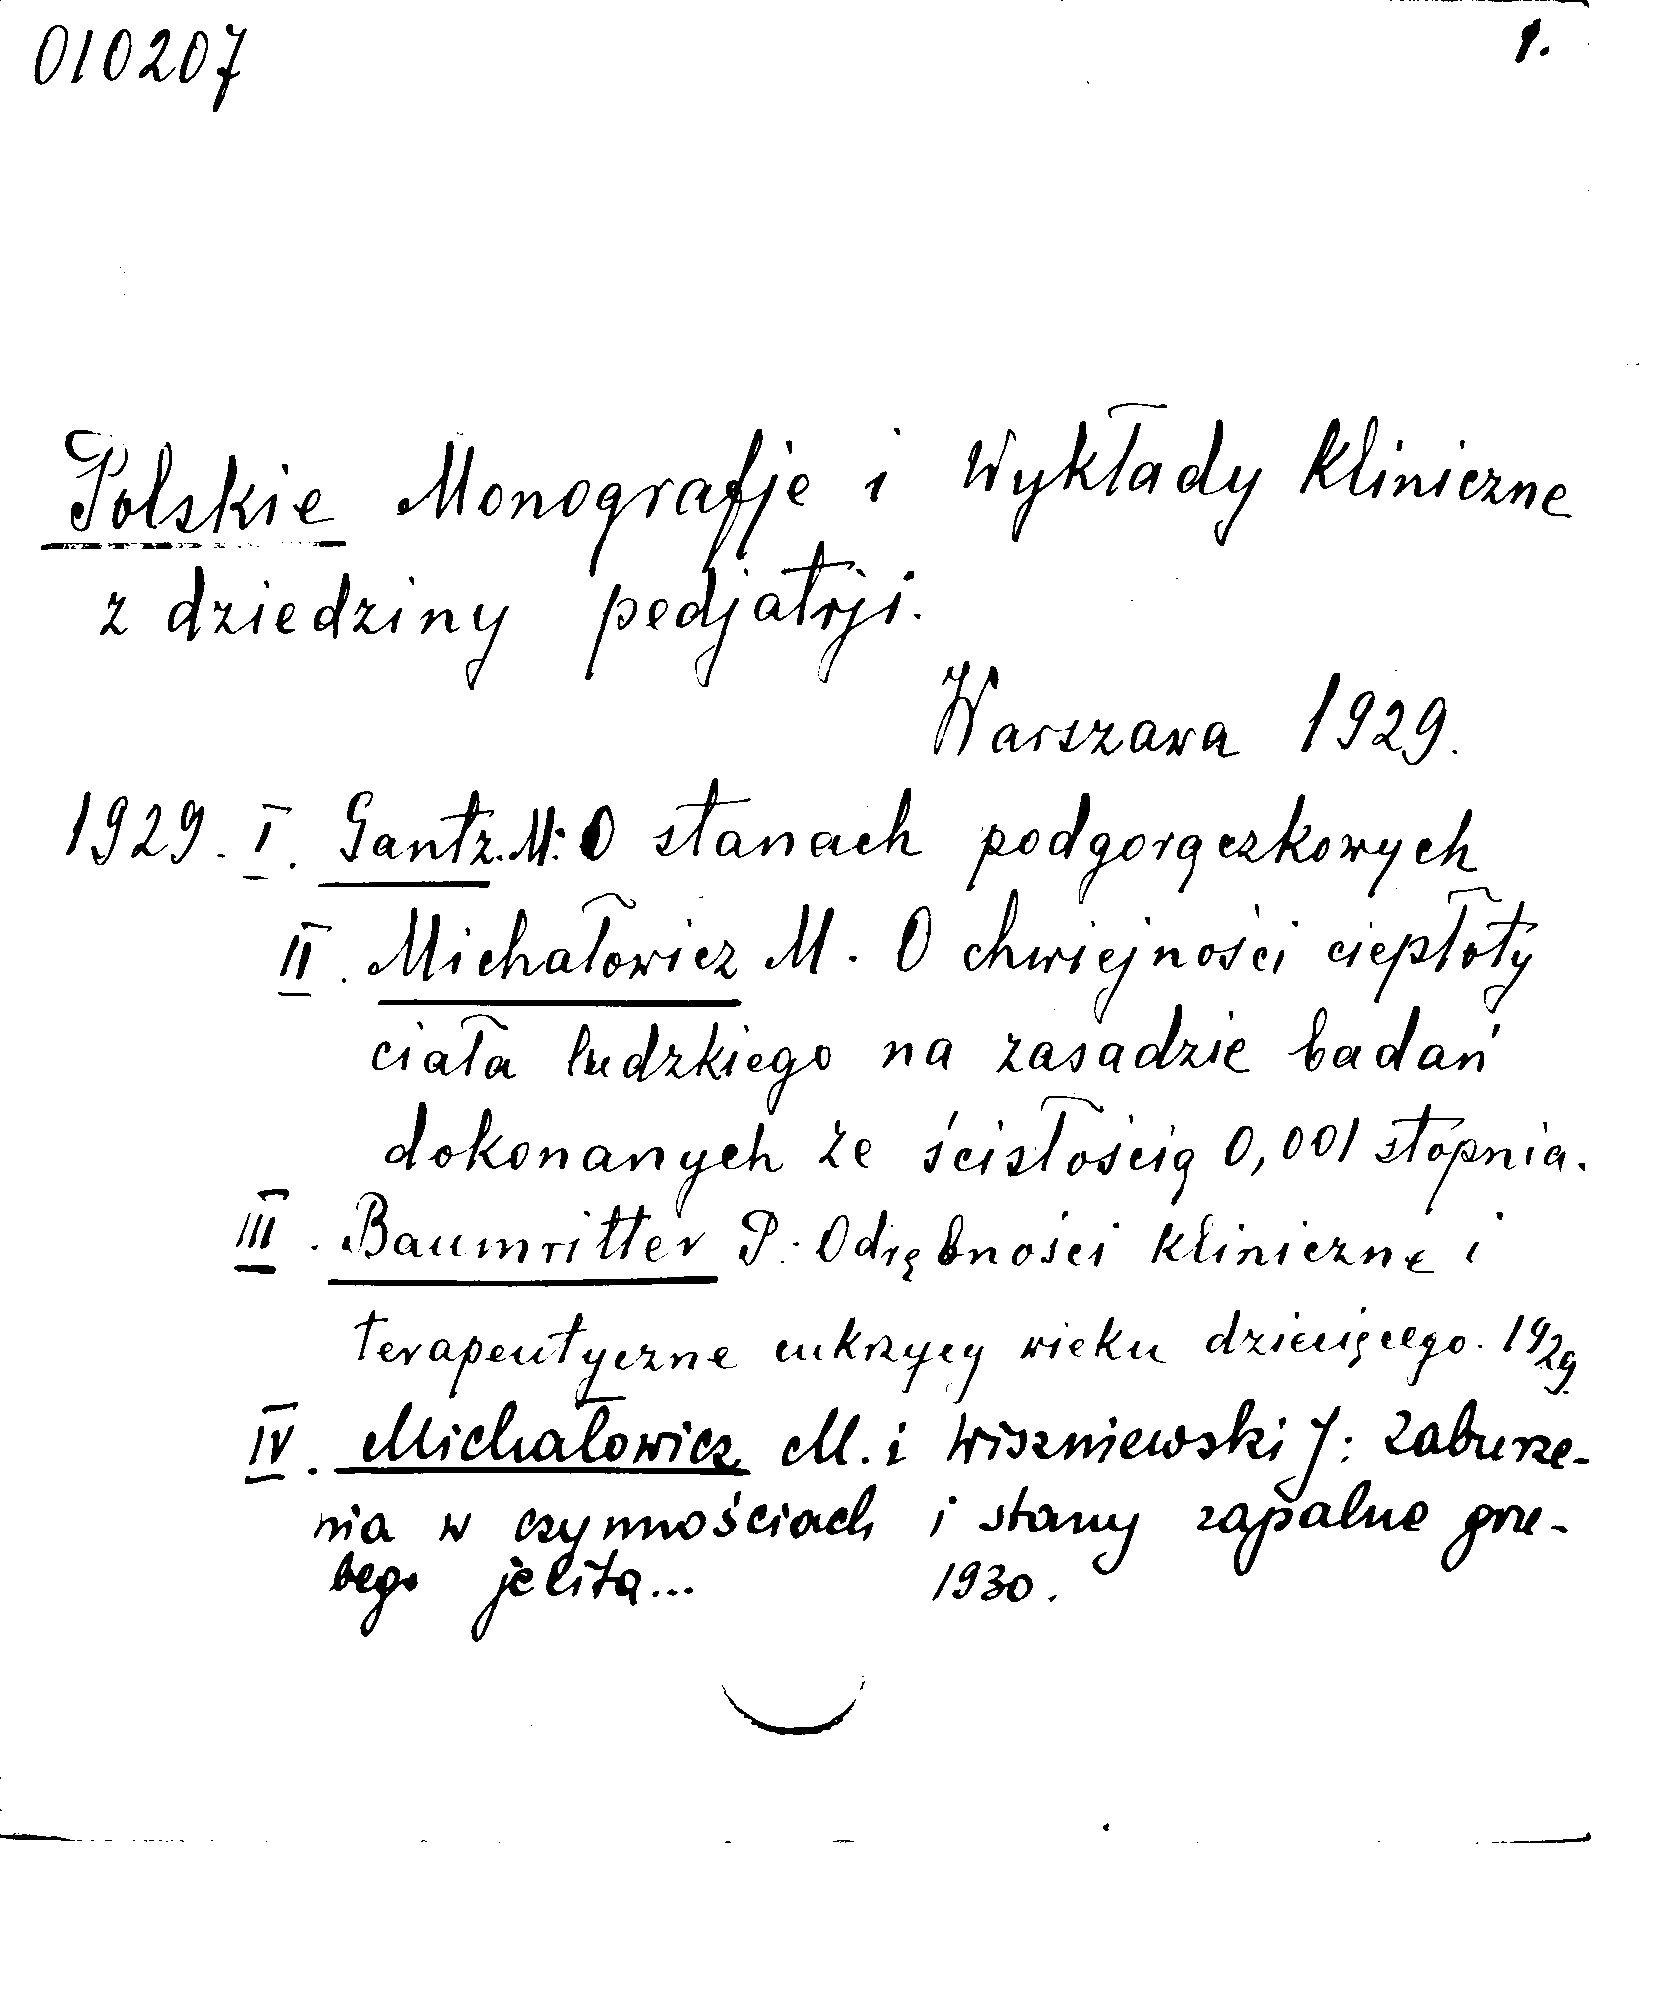 010207
1.
Polskie Monografje i Wykłady kliniczne
z dziedziny pedjatrji.
Warszawa 1929.
1929. I. Gantz. M: O stanach podgorączkowych
II. Michałowicz M. O chwiejności ciepłoty
ciała ludzkiego na zasadzie badań
dokonanych ze ścisłością 0,001 stopnia.
III. Baumritter P. Odrębności kliniczne i
terapeutyczne cukrzycy wieku dziecięcego. 1929.
IV. Michałowicz M. i Wiszniewski J: Zaburze-
nia w czynnościach i stany zapalne gru-
bego jelita... 1930.